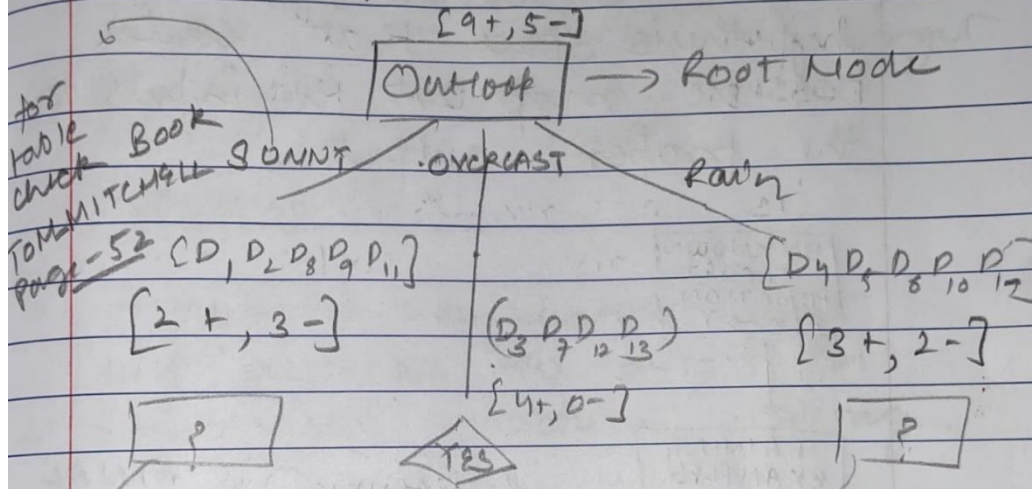 [9+, 5-]
Outlook → Root Node
for
table
check Book
TOM MITCHELL
page-52
SUNNY
OVERCAST
Rain
[D1 D2 D8 D9 D11]
[D4 D5 D6 D10 D12]
[2+, 3-]
(D3 D7 D12 D13)
[3+, 2-]
[4+, 0-]
?
YES
?